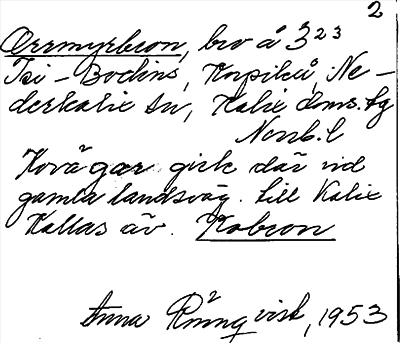 2
Orrmyrbron, bro å 3 23
Isi-Bodins, Korpikå, Ne-
derkalix sn, Kalix doms. tg
Norrb. l
Kovägar gick där vid
gamla landsväg. till Kalix
Kallas äv. Kobron
Anna Rönnqvist, 1953